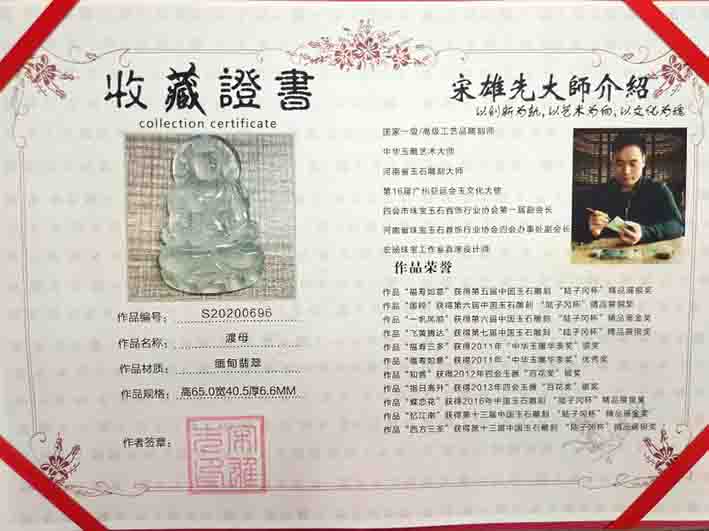 收藏證書
collection certificate
作品编号: S20200696
作品名称: 渡母
作品材质: 缅甸翡翠
作品规格: 高65.0宽40.5厚6.6MM
作者签章:
宋雄先大師介紹
以创新为轨,以艺术为向,以文化为魂
国家一级/高级工艺品雕刻师
中华玉雕艺术大师
河南省玉石雕刻大师
第16届广州亚运会玉文化大使
四会市珠宝玉石首饰行业协会第一届副会长
河南省珠宝玉石首饰行业协会四会办事处副会长
宏涵珠宝工作室首席设计师
作品荣誉
作品“福寿如意”获得第五届中国玉石雕刻 “陆子冈杯”精品展银奖
作品“国粹”获得第六届中国玉石雕刻 “陆子冈杯”精品展铜奖
作品“一帆风顺”获得第六届中国玉石雕刻 “陆子冈杯”精品展金奖
作品“飞黄腾达”获得第七届中国玉石雕刻 “陆子冈杯”精品展银奖
作品“福寿三多”获得2011年“中华玉雕华泰奖”银奖
作品“福寿如意”获得2011年“中华玉雕华泰奖”优秀奖
作品“知音”获得2012年四会玉器“百花奖”银奖
作品“指日高升”获得2013年四会玉器“百花奖”银奖
作品“蝶恋花”获得2016年中国玉石雕刻“陆子冈杯”精品展铜奖
作品“忆江南”获得第十三届中国玉石雕刻“陆子冈杯”精品展金奖
作品“西方三圣”获得第十三届中国玉石雕刻“陆子冈杯”精品展银奖